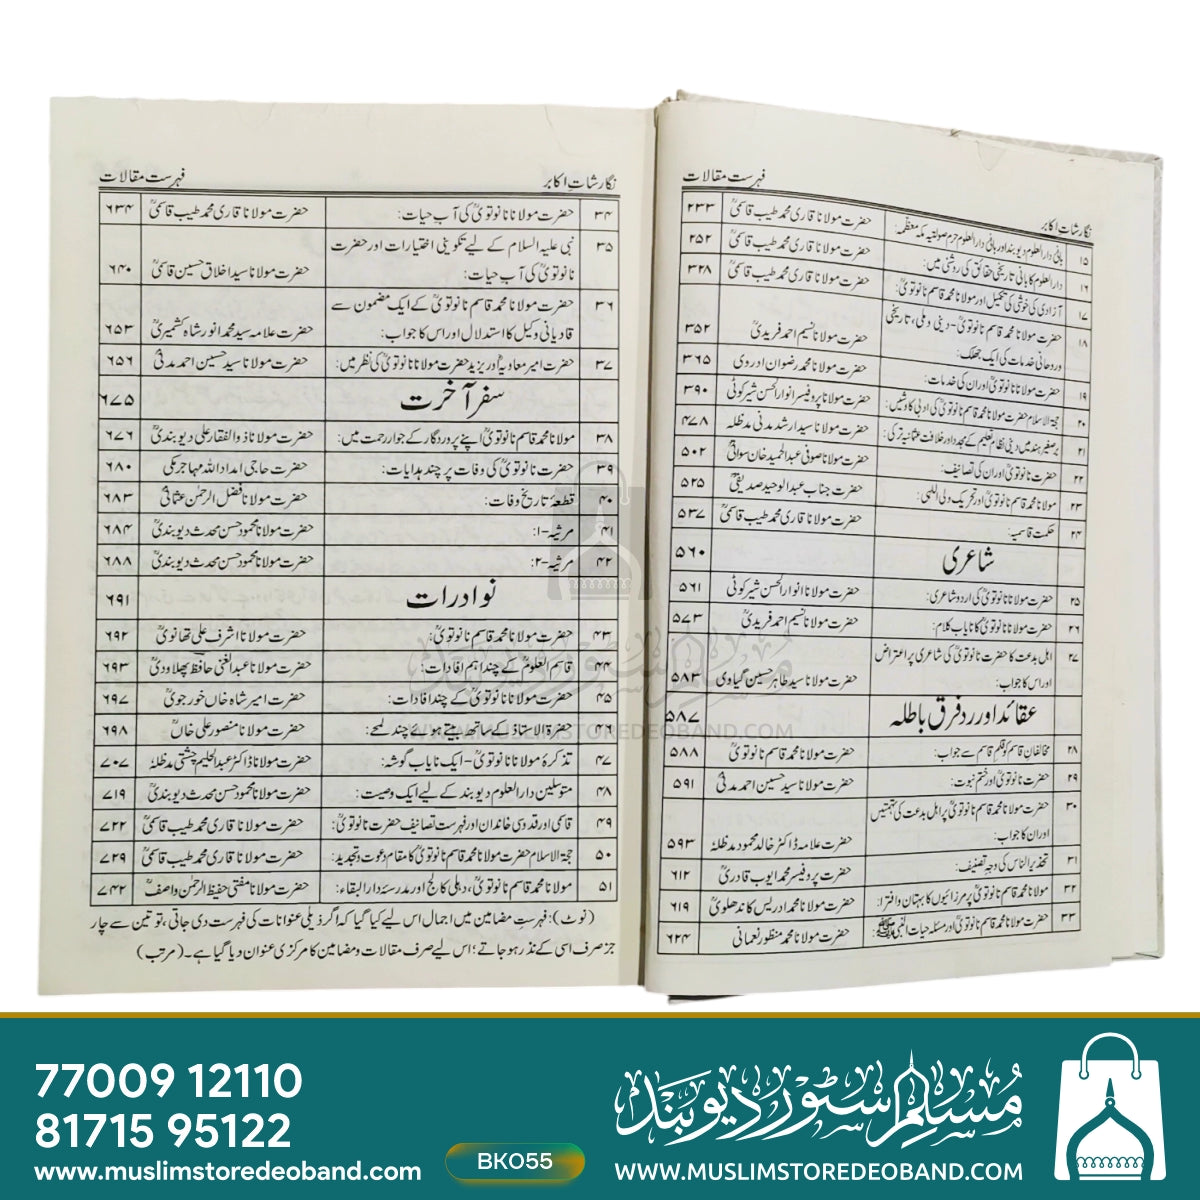 نگارشات اکابر فہرست مقالات
۱۵ بانی دارالعلوم دیوبند اور بانی دارالعلوم حرم صولتیہ مکہ معظمہ: حضرت مولانا قاری محمد طیب قاسمیؒ ۲۳۳
۱۶ دارالعلوم کا بانی تاریخی حقائق کی روشنی میں: حضرت مولانا قاری محمد طیب قاسمیؒ ۲۵۲
۱۷ آزادی کی خوشی کی تکمیل اور مولانا محمد قاسم نانوتویؒ: حضرت مولانا قاری محمد طیب قاسمیؒ ۳۲۸
۱۸ حضرت مولانا محمد قاسم نانوتویؒ- دینی وملی، تاریخی
وروحانی خدمات کی ایک جھلک: حضرت مولانا نسیم احمد فریدیؒ ۳۵۲
۱۹ حضرت مولانا نانوتویؒ اور ان کی خدمات: حضرت مولانا محمد رضوان ادروی ۳۶۵
۲۰ حجۃ الاسلام حضرت مولانا محمد قاسم نانوتویؒ کی ادبی کاوشیں: حضرت مولانا پروفیسر انوار الحسن شیر کوٹی ۳۹۰
۲۱ برصغیر ہند میں دینی نظام تعلیم کے مجدد اور خلافت عثمانیہ ترکی: حضرت مولانا سید ارشد مدنی مدظلہ ۴۷۸
۲۲ حضرت نانوتویؒ اور ان کی تصانیف: حضرت مولانا صوفی عبدالحمید خان سواتیؒ ۵۰۲
۲۳ مولانا محمد قاسم نانوتویؒ اور تحریک ولی اللہی: حضرت جناب عبدالوحید صدیقیؒ ۵۲۵
۲۴ حکمت قاسمیہ: حضرت مولانا قاری محمد طیب قاسمیؒ ۵۳۷
شاعری ۵۶۰
۲۵ حضرت مولانا نانوتویؒ کی اردو شاعری: حضرت مولانا انوار الحسن شیر کوٹی ۵۶۱
۲۶ حضرت مولانا نانوتویؒ کا نایاب کلام: حضرت مولانا نسیم احمد فریدیؒ ۵۷۳
۲۷ اہل بدعت کا حضرت نانوتویؒ کی شاعری پر اعتراض
اور اس کا جواب: حضرت مولانا سید طاہر حسین گیاوی ۵۸۳
عقائد اور رد فرق باطلہ ۵۸۷
۲۸ مخالفان قاسم کو قلم قاسم سے جواب: حضرت مولانا محمد قاسم نانوتویؒ ۵۸۸
۲۹ حضرت نانوتویؒ اور ختم نبوت: حضرت مولانا سید حسین احمد مدنیؒ ۵۹۱
۳۰ حضرت مولانا محمد قاسم نانوتویؒ پر اہل بدعت کی تہمتیں
اور ان کا جواب: حضرت علامہ ڈاکٹر خالد محمود مدظلہٗ ۵۹۳
۳۱ تحذیر الناس کی وجہ تصنیف: حضرت پروفیسر محمد ایوب قادریؒ ۶۱۲
۳۲ مولانا محمد قاسم نانوتویؒ پر مرزائیوں کا بہتان وافترا: حضرت مولانا محمد ادریس کاندھلویؒ ۶۱۹
۳۳ حضرت مولانا محمد قاسم نانوتویؒ اور مسئلہ حیات النبی ﷺ: حضرت مولانا محمد منظور نعمانی ۶۲۴
نگارشات اکابر فہرست مقالات
۳۴ حضرت مولانا نانوتویؒ کی آب حیات: حضرت مولانا قاری محمد طیب قاسمیؒ ۶۳۴
۳۵ نبی علیہ السلام کے لیے تکوینی اختیارات اور حضرت
نانوتویؒ کی آب حیات: حضرت مولانا سید اخلاق حسین قاسمیؒ ۶۴۰
۳۶ حضرت مولانا محمد قاسم نانوتویؒ کے ایک مضمون سے
قادیانی وکیل کا استدلال اور اس کا جواب: حضرت علامہ سید محمد انور شاہ کشمیریؒ ۶۵۳
۳۷ حضرت امیر معاویہؓ اور یزید حضرت مولانا نانوتویؒ کی نظر میں: حضرت مولانا سید حسین احمد مدنیؒ ۶۵۶
سفر آخرت ۶۷۵
۳۸ مولانا محمد قاسم نانوتویؒ اپنے پروردگار کے جوار رحمت میں: حضرت مولانا ذوالفقار علی دیوبندیؒ ۶۷۶
۳۹ حضرت نانوتویؒ کی وفات پر چند ہدایات: حضرت حاجی امداد اللہ مہاجر مکی ۶۸۰
۴۰ قطعۂ تاریخ وفات: حضرت مولانا فضل الرحمٰن عثمانیؒ ۶۸۳
۴۱ مرثیہ-۱: حضرت مولانا محمود حسن محدث دیوبندیؒ ۶۸۴
۴۲ مرثیہ-۲: حضرت مولانا محمود حسن محدث دیوبندیؒ ۶۸۸
نوادرات ۶۹۱
۴۳ حضرت مولانا محمد قاسم نانوتویؒ: حضرت مولانا اشرف علی تھانویؒ ۶۹۲
۴۴ قاسم العلومؒ کے چند اہم افادات: حضرت مولانا عبدالغنی حافظ پھلاودیؒ ۶۹۳
۴۵ حضرت مولانا نانوتویؒ کے چند افادات: حضرت امیر شاہ خاں خورجویؒ ۶۹۷
۴۶ حضرۃ الاستاذ کے ساتھ بیتے ہوئے چند لمحے: حضرت مولانا منصور علی خاںؒ ۶۹۸
۴۷ تذکرۂ مولانا نانوتویؒ- ایک نایاب گوشہ: حضرت مولانا ڈاکٹر عبدالحلیم چشتی مدظلہٗ ۷۰۷
۴۸ متوسلین دارالعلوم دیوبند کے لیے ایک وصیت: حضرت مولانا محمود حسن محدث دیوبندیؒ ۷۱۹
۴۹ قاسمی اور قدوسی خاندان اور فہرست تصانیف حضرت نانوتویؒ: حضرت مولانا قاری محمد طیب قاسمیؒ ۷۲۲
۵۰ حجۃ الاسلام حضرت مولانا محمد قاسم نانوتویؒ کا مقام دعوت وتجدید: حضرت مولانا قاری محمد طیب قاسمیؒ ۷۲۹
۵۱ مولانا محمد قاسم نانوتویؒ، دہلی کالج اور مدرسۂ دارالبقاء: حضرت مولانا مفتی حفیظ الرحمٰن واصفؒ ۷۴۲
(نوٹ): فہرست مضامین میں اجمال اس لیے کیا گیا کہ اگر ذیلی عنوانات کی فہرست دی جاتی، تو تین سے چار
جز صرف اسی کے نذر ہو جاتے؛ اس لیے صرف مقالات ومضامین کا مرکزی عنوان دیا گیا ہے۔ (مرتب)
مسلم سٹور دیوبند
WWW.MUSLIMSTOREDEOBAND.COM
77009 12110
81715 95122
www.muslimstoredeoband.com
BK055
مسلم سٹور دیوبند
WWW.MUSLIMSTOREDEOBAND.COM